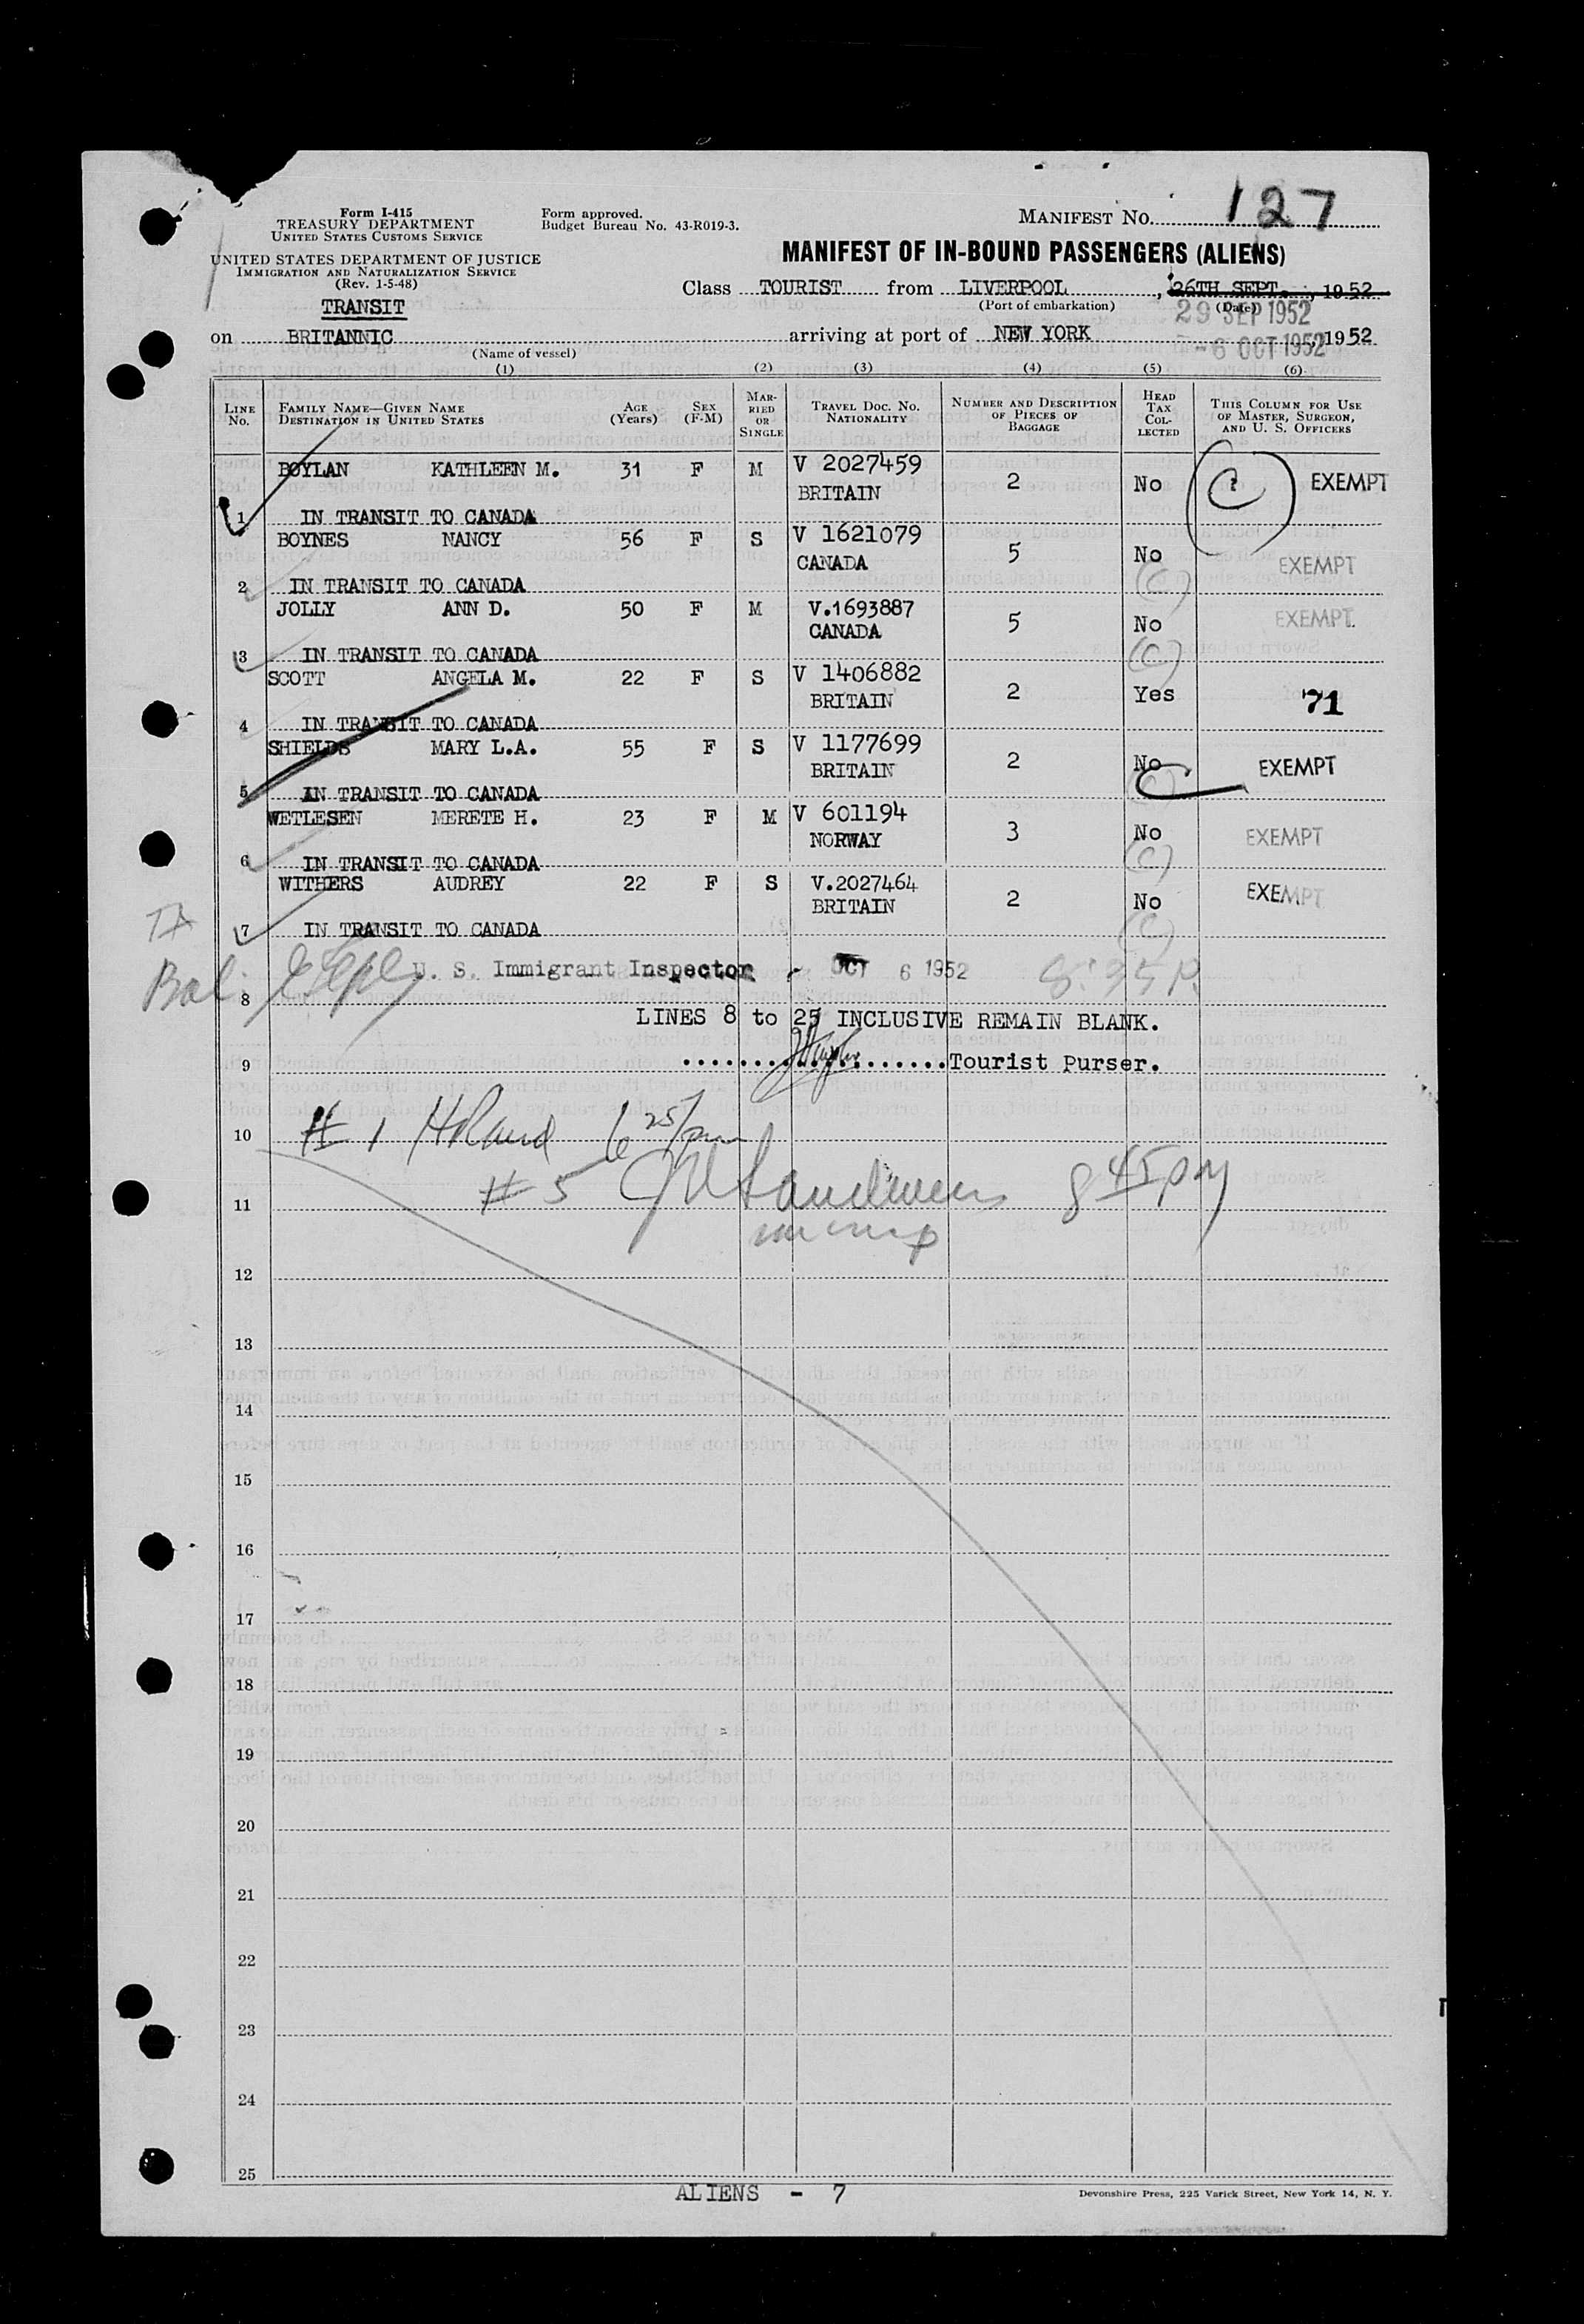 Form I-415
TREASURY DEPARTMENT
UNITED STATES CUSTOMS SERVICE
UNITED STATES DEPARTMENT OF JUSTICE
IMMIGRATION AND NATURALIZATION SERVICE
(Rev. 1-5-48)
TRANSIT
Form approved.
Budget Bureau No. 43-R019-3.
MANIFEST NO. 127
MANIFEST OF IN-BOUND PASSENGERS (ALIENS)
Class TOURIST from LIVERPOOL, 26TH SEPT., 1952
(Port of embarkation) (Date)
29 SEP 1952
on BRITANNIC arriving at port of NEW YORK, 1952
(Name of vessel)
-6 OCT 1952
(1) (2) (3) (4) (5) (6)
LINE No. FAMILY NAME—GIVEN NAME DESTINATION IN UNITED STATES AGE (Years) SEX (F-M) MARRIED OR SINGLE TRAVEL DOC. NO. NATIONALITY NUMBER AND DESCRIPTION OF PIECES OF BAGGAGE HEAD TAX COLLECTED THIS COLUMN FOR USE OF MASTER, SURGEON, AND U. S. OFFICERS
BOYLAN KATHLEEN M. 31 F M V 2027459 BRITAIN 2 No EXEMPT
1 IN TRANSIT TO CANADA
BOYNES NANCY 56 F S V 1621079 CANADA 5 No (C) EXEMPT
2 IN TRANSIT TO CANADA
JOLLY ANN D. 50 F M V.1693887 CANADA 5 No (C) EXEMPT
3 IN TRANSIT TO CANADA
SCOTT ANGELA M. 22 F S V 1406882 BRITAIN 2 Yes 71
4 IN TRANSIT TO CANADA
SHIELDS MARY L.A. 55 F S V 1177699 BRITAIN 2 No EXEMPT
5 IN TRANSIT TO CANADA
WETLESEN MERETE H. 23 F M V 601194 NORWAY 3 No (C) EXEMPT
6 IN TRANSIT TO CANADA
WITHERS AUDREY 22 F S V.2027464 BRITAIN 2 No (C) EXEMPT
7 IN TRANSIT TO CANADA
Bal. U. S. Immigrant Inspector OCT 6 1952
8
LINES 8 to 25 INCLUSIVE REMAIN BLANK.
9 Tourist Purser.
10 # 1 6 25/pm
11 # 5 8 45 pm
12
13
14
15
16
17
18
19
20
21
22
23
24
25
ALIENS - 7
Devonshire Press, 225 Varick Street, New York 14, N. Y.